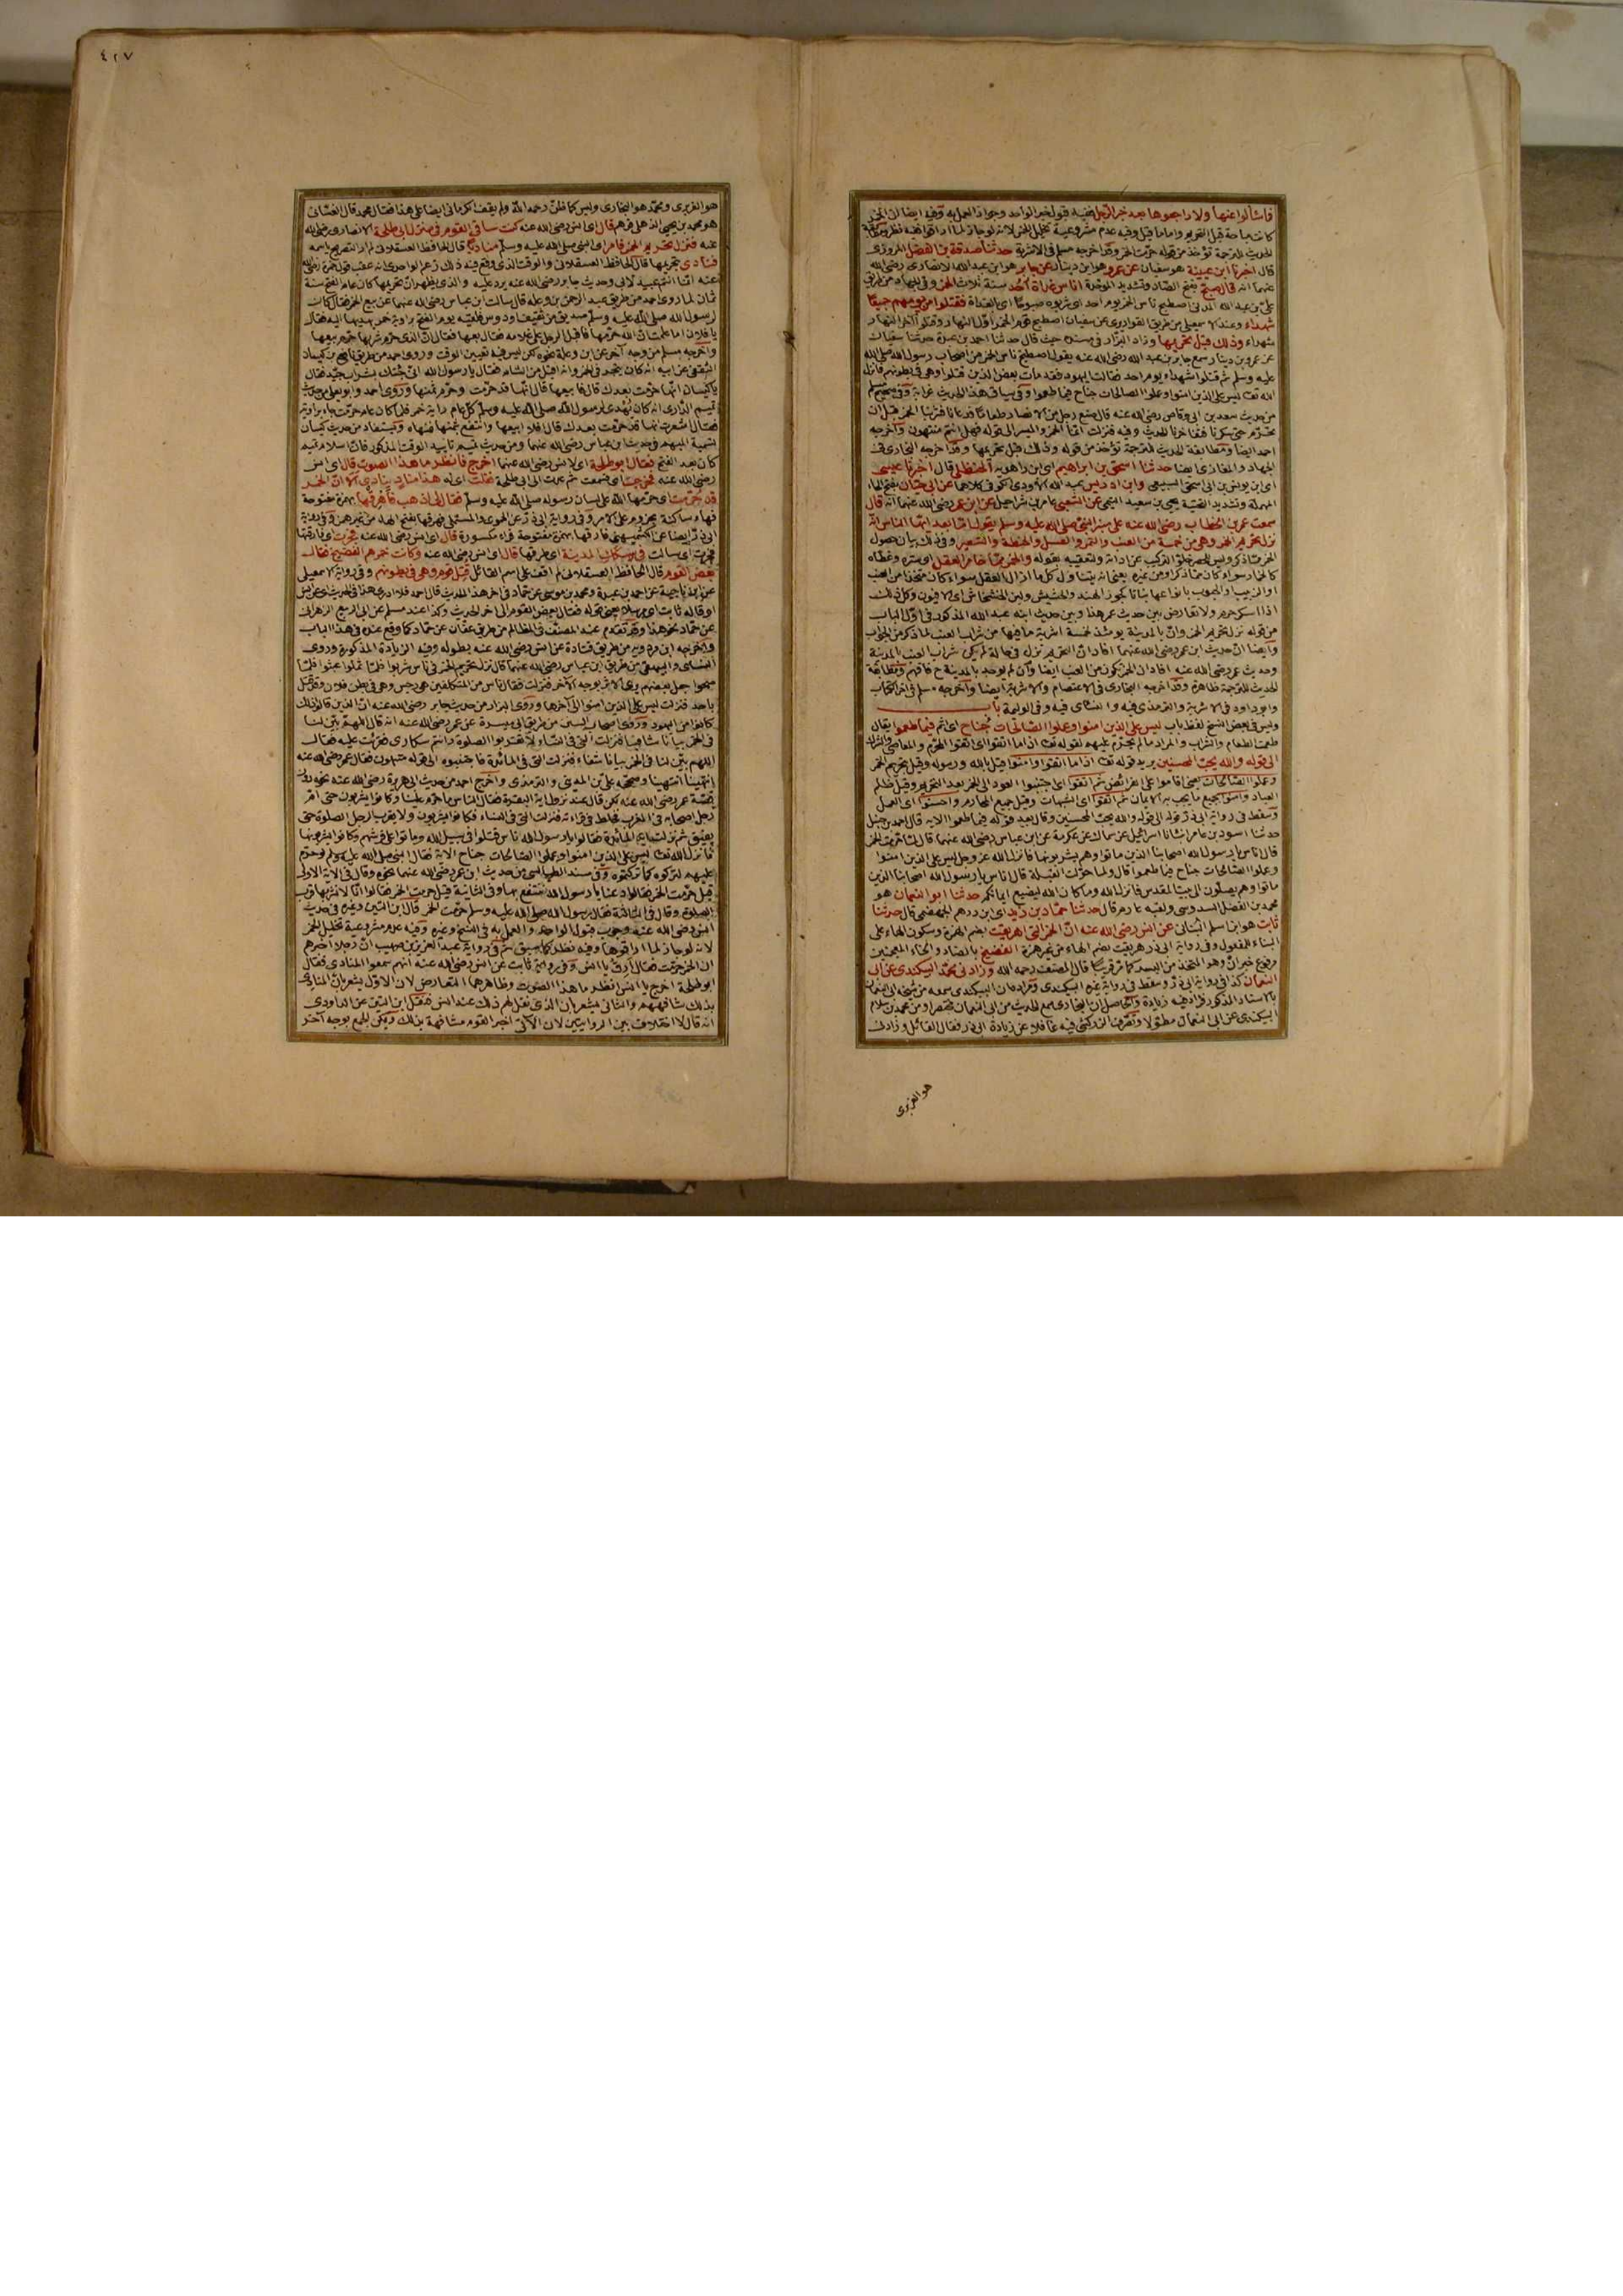 ٤٢٧
فاسألوا عنها ولا راجعوها بعد خبر الرجل ففيه قبول خبر الواحد وجواز العمل به وفيه ايضا ان الخمر
كانت مباحة قبل التحريم واما ما قيل وفيه عدم مشروعية تخليل الخمر لانه لو جاز لما اراقوا ففيه نظر
الحديث للترجمة تؤخذ من قوله حرمت الخمر وقد اخرجه مسلم في الاشربة حدثنا صدقة بن الفضل المروزى
قال اخبرنا ابن عيينة هو سفيان عن عمرو هو ابن دينار عن جابر هو ابن عبد الله الانصارى رضى الله
عنهما انه قال صبح بفتح الصاد وتشديد الموحدة اناس غداة احد سنة ثلاث الخمر وفي الجهاد من طريق
على بن عبد الله المدنى اصطبح ناس الخمر يوم احد اى شربوه صبوحا اى بالغداة فقتلوا من يومهم جميعا
شهداء وعند الاسمعيلى من طريق القواريرى عن سفيان اصطبح قوم الخمر اول النهار وقتلوا آخر النهار
شهداء وذلك قبل تحريمها وزاد البزار في مسنده حيث قال حدثنا احمد بن عبدة حدثنا سفيان
عن عمرو بن دينار سمع جابر بن عبد الله رضى الله عنه يقول اصطبح ناس الخمر من اصحاب رسول الله صلى الله
عليه وسلم ثم قتلوا شهداء يوم احد فقالت اليهود فقد مات بعض الذين قتلوا وهى في بطونهم فانزل
الله تعالى ليس على الذين امنوا وعملوا الصالحات جناح فيما طعموا وفي سياق هذا الحديث غرابة وفي صحيح مسلم
من حديث سعد بن ابى وقاص رضى الله عنه قال صنع رجل من الانصار طعاما فدعانا فشربنا الخمر قبل ان
تحرم حتى سكرنا فتفاخرنا الحديث وفيه فنزلت انما الخمر والميسر الى قوله فهل انتم منتهون واخرجه
احمد ايضا ومطابقة الحديث للترجمة تؤخذ من قوله وذلك قبل تحريمها وقد اخرجه البخارى في
الجهاد والمغازى ايضا حدثنا اسحق بن ابراهيم اى ابن راهويه الحنظلى قال اخبرنا عيسى
اى ابن يونس بن ابى اسحق السبيعى وابن ادريس عبد الله الاودى الكوفى كلاهما عن ابى حيان بفتح الحاء
المهملة وتشديد التحتية يحيى بن سعيد التيمى عن الشعبى عامر بن شراحيل عن ابن عمر رضى الله عنهما انه قال
سمعت عمر بن الخطاب رضى الله عنه على منبر النبى صلى الله عليه وسلم يقول اما بعد ايها الناس انه
نزل تحريم الخمر وهى من خمسة من العنب والتمر والعسل والحنطة والشعير وفي ذلك بيان حصول
الخمر مما ذكر وليس للحصر لخلو التركيب عن اداته ولتعقيبه بقوله والخمر ما خامر العقل اى ستره وغطاه
كالخمار سواء كان مما ذكر او من غيره يعنى انه يتناول كل ما ازال العقل سواء كان متخذا من العنب
او الزبيب او الحبوب بانواعها نباتا كجوز الهند والحشيش ولبن الخشخاش اى الافيون وكل ذلك
اذا اسكر حرم ولا تعارض بين حديث عمر هذا وبين حديث ابنه عبد الله المذكور في اول الباب
من قوله نزل تحريم الخمر وان بالمدينة يومئذ لخمسة اشربة ما فيها من شراب العنب
وايضا ان حديث ابن عمر رضى الله عنهما افاد ان التحريم نزل في حالة لم يكن شراب العنب بالمدينة
وحديث عمر رضى الله عنه افاد ان الخمر تكون من العنب ايضا وان لم يوجد بالمدينة ح فافهم ومطابقة
الحديث للترجمة ظاهرة وقد اخرجه البخارى في الاعتصام والاشربة ايضا واخرجه مسلم في اخر الكتاب
وابو داود في الاشربة والترمذى فيه والنسائى فيه وفي الوليمة باب
وليس في بعض النسخ لفظ باب ليس على الذين امنوا وعملوا الصالحات جناح اى اثم فيما طعموا يقال
طعمت الطعام والشراب والمراد ما لم يحرم عليهم لقوله تعالى اذا ما اتقوا اى اتقوا المحرم والمعاصى والشرك
الى قوله والله يحب المحسنين يريد قوله تعالى اذا ما اتقوا وامنوا قيل بالله ورسوله وقيل بتحريم الخمر
وعملوا الصالحات يعنى اقاموا على الفرائض ثم اتقوا اى اجتنبوا العود الى الخمر بعد التحريم وقيل ظلم
العباد وامنوا بجميع ما يجب به الايمان ثم اتقوا اى الشبهات وقيل جميع المحارم واحسنوا اى العمل
وسقط في رواية ابى ذر قوله الى قوله والله يحب المحسنين وقال بعد قوله فيما طعموا الاية قال احمد بن حنبل
حدثنا اسود بن عامر انبأنا اسرائيل عن سماك عن عكرمة عن ابن عباس رضى الله عنهما قال لما حرمت الخمر
قال ناس يا رسول الله اصحابنا الذين ماتوا وهم يشربونها فانزل الله عز وجل ليس على الذين امنوا
وعملوا الصالحات جناح فيما طعموا قال ولما حولت القبلة قال ناس يا رسول الله اصحابنا الذين
ماتوا وهم يصلون الى بيت المقدس فانزل الله وما كان الله ليضيع ايمانكم حدثنا ابو النعمان هو
محمد بن الفضل السدوسى ولقبه عارم قال حدثنا حماد بن زيد اى ابن درهم الجهضمى قال حدثنا
ثابت هو ابن اسلم البنانى عن انس رضى الله عنه ان الخمر التى اهريقت بضم الهمزة وسكون الهاء على
البناء للمفعول وفي رواية ابى ذر هريقت بضم الهاء من غير همزة الفضيخ بالضاد والخاء المعجمتين
مرفوع خبر ان وهو المتخذ من البسر كما مر قريبا قال المصنف رحمه الله وزادنى محمد البيكندى عن ابى
النعمان كذا في رواية ابى ذر وسقط في رواية غيره البيكندى ومراده ان البيكندى سمعه من شيخه ابى النعمان
بالاسناد المذكور فزاد فيه زيادة والحاصل ان البخارى سمع الحديث من ابى النعمان مختصرا ومن محمد بن سلام
البيكندى عن ابى النعمان مطولا وتصرف الزركشى فيه غافلا عن زيادة ابى ذر فقال القائل وزادنى
هو الفربرى
هو الفربرى ومحمد هو البخارى وليس كما ظن رحمه الله ولم يقف الكرمانى ايضا على هذا فقال محمد قال الغسانى
هو محمد بن يحيى الذهلى فوهم قال اى انس رضى الله عنه كنت ساقى القوم في منزل ابى طلحة الانصارى رضى الله
عنه فنزل تحريم الخمر فامر اى النبى صلى الله عليه وسلم مناديا قال الحافظ العسقلانى لم ار التصريح باسمه
فنادى بتحريمها قال الحافظ العسقلانى والوقت الذى وقع فيه ذلك زعم الواحدى انه عقب قول حمزة رضى الله
عنه انما انتم عبيد لابى وحديث جابر رضى الله عنه يرد عليه والذى يظهر ان تحريمها كان عام الفتح سنة
ثمان لما روى احمد من طريق عبد الرحمن بن وعلة قال سالت ابن عباس رضى الله عنهما عن بيع الخمر فقال كان
لرسول الله صلى الله عليه وسلم صديق من ثقيف او دوس فلقيه يوم الفتح براوية خمر يهديها اليه فقال
يا فلان اما علمت ان الله حرمها فاقبل الرجل على غلامه فقال بعها فقال ان الذى حرم شربها حرم بيعها
واخرجه مسلم من وجه آخر عن ابن وعلة نحوه لكن ليس فيه تعيين الوقت وروى احمد من طريق نافع بن كيسان
الثقفى عن ابيه انه كان يتجر في الخمر وانه اقبل من الشام فقال يا رسول الله انى جئتك بشراب جيد فقال
يا كيسان انها حرمت بعدك قال فابيعها قال انها قد حرمت وحرم ثمنها وروى احمد وابو يعلى من حديث
تميم الدارى انه كان يهدى لرسول الله صلى الله عليه وسلم كل عام راوية خمر فلما كان عام حرمت جاء براوية
فقال اشعرت انها قد حرمت بعدك قال افلا ابيعها وانتفع بثمنها فنهاه ويستفاد من حديث كيسان
تسمية المبهم في حديث ابن عباس رضى الله عنهما ومن حديث تميم تاييد الوقت المذكور فان اسلام تميم
كان بعد الفتح فقال ابو طلحة اى لانس رضى الله عنهما اخرج فانظر ما هذا الصوت قال اى انس
رضى الله عنه فخرجت اى فسمعت ثم عدت الى ابى طلحة فقلت اى له هذا مناد ينادى الا ان الخمر
قد حرمت اى حرمها الله على لسان رسوله صلى الله عليه وسلم فقال لى اذهب فاهرقها بهمزة مفتوحة
فهاء ساكنة مجزوم على الامر وفي رواية ابى ذر عن الحموى والمستملى فهرقها بفتح الهاء من غير همز وفي رواية
ابى ذر ايضا عن الكشميهنى فارقها بهمزة مفتوحة فراء مكسورة قال اى انس رضى الله عنه فجرت
فجرت اى سالت في سكك المدينة اى طرقها قال اى انس رضى الله عنه وكانت خمرهم الفضيخ فقال
بعض القوم قال الحافظ العسقلانى لم اقف على اسم القائل قتل قوم وهى في بطونهم وفي رواية الاسمعيلى
عن ابن ناجية عن احمد بن عبدة ومحمد بن موسى عن حماد في اخر هذا الحديث قال حماد فلا ادرى هذا في الحديث اى عن انس
او قاله ثابت اى مرسلا يعنى قوله فقال بعض القوم الى اخر الحديث وكذا عند مسلم عن ابى الربيع الزهرانى
عن حماد نحو هذا وقد تقدم عند المصنف في المظالم من طريق عفان عن حماد كما وقع عنده في هذا الباب
واخرجه ابن مردويه من طريق قتادة عن انس رضى الله عنه بطوله وفيه الزيادة المذكورة وروى
النسائى والبيهقى من طريق ابن عباس رضى الله عنهما قال نزل تحريم الخمر في ناس شربوا فلما ثملوا عبثوا فلما
صحوا جعل بعضهم يرى الاثر بوجه الاخر فنزلت فقال ناس من المتكلفين هى رجس وهى في بطن فلان وقد قتل
باحد فنزلت ليس على الذين امنوا الى آخرها وروى البزار من حديث جابر رضى الله عنه ان الذين قالوا ذلك
كانوا من اليهود وروى اصحاب السنن من طريق ابى ميسرة عن عمر رضى الله عنه انه قال اللهم بين لنا
في الخمر بيانا شافيا فنزلت التى في النساء لا تقربوا الصلوة وانتم سكارى فقرئت عليه فقال
اللهم بين لنا في الخمر بيانا شفاء فنزلت التى في المائدة فاجتنبوه الى قوله منتهون فقال عمر رضى الله عنه
انتهينا انتهينا وصححه على بن المدينى والترمذى واخرج احمد من حديث ابى هريرة رضى الله عنه نحوه دون
قصة عمر رضى الله عنه لكن قال عند نزول اية البقرة فقال الناس ما حرم علينا وكانوا يشربون حتى ام
رجل اصحابه في المغرب فخلط في قراءته فنزلت التى في النساء فكانوا يشربون ولا يقرب الرجل الصلوة حتى
يفيق ثم نزلت اية المائدة فقالوا يا رسول الله ناس قتلوا في سبيل الله وماتوا على فرشهم وكانوا يشربونها
فانزل الله تعالى ليس على الذين امنوا وعملوا الصالحات جناح الاية فقال النبى صلى الله عليه وسلم لو حرم
عليهم لتركوه كما تركتموه وفي مسند الطيالسى من حديث ابن عمر رضى الله عنهما نحوه وقال في الاية الاولى
قيل حرمت الخمر فقالوا دعنا يا رسول الله ننتفع بها وفي الثانية قيل حرمت الخمر فقالوا انا لا نشربها قرب
الصلوة وقال في الثالثة فقال رسول الله صلى الله عليه وسلم حرمت الخمر قال ابن التين وغيره في حديث
انس رضى الله عنه وجوب قبول الواحد والعمل به في النسخ وغيره وفيه عدم مشروعية تخليل الخمر
لانه لو جاز لما اراقوها وفيه نظر كما سبق ثم في رواية عبد العزيز بن صهيب ان رجلا اخبرهم
ان الخمر حرمت فقال ارق يا انس وفي رواية ثابت عن انس رضى الله عنه انهم سمعوا المنادى فقال
ابو طلحة اخرج يا انس انظر ما هذا الصوت وظاهرهما التعارض لان الاول يشعر بان المنادى
بذلك شافههم والثانى يشعر بان الذى نقل لهم ذلك عند انس فنقل ابن التين عن الداودى
انه قال لا اختلاف بين الروايتين لان الآتى اخبر القوم مشافهة بذلك ويمكن الجمع بوجه آخر